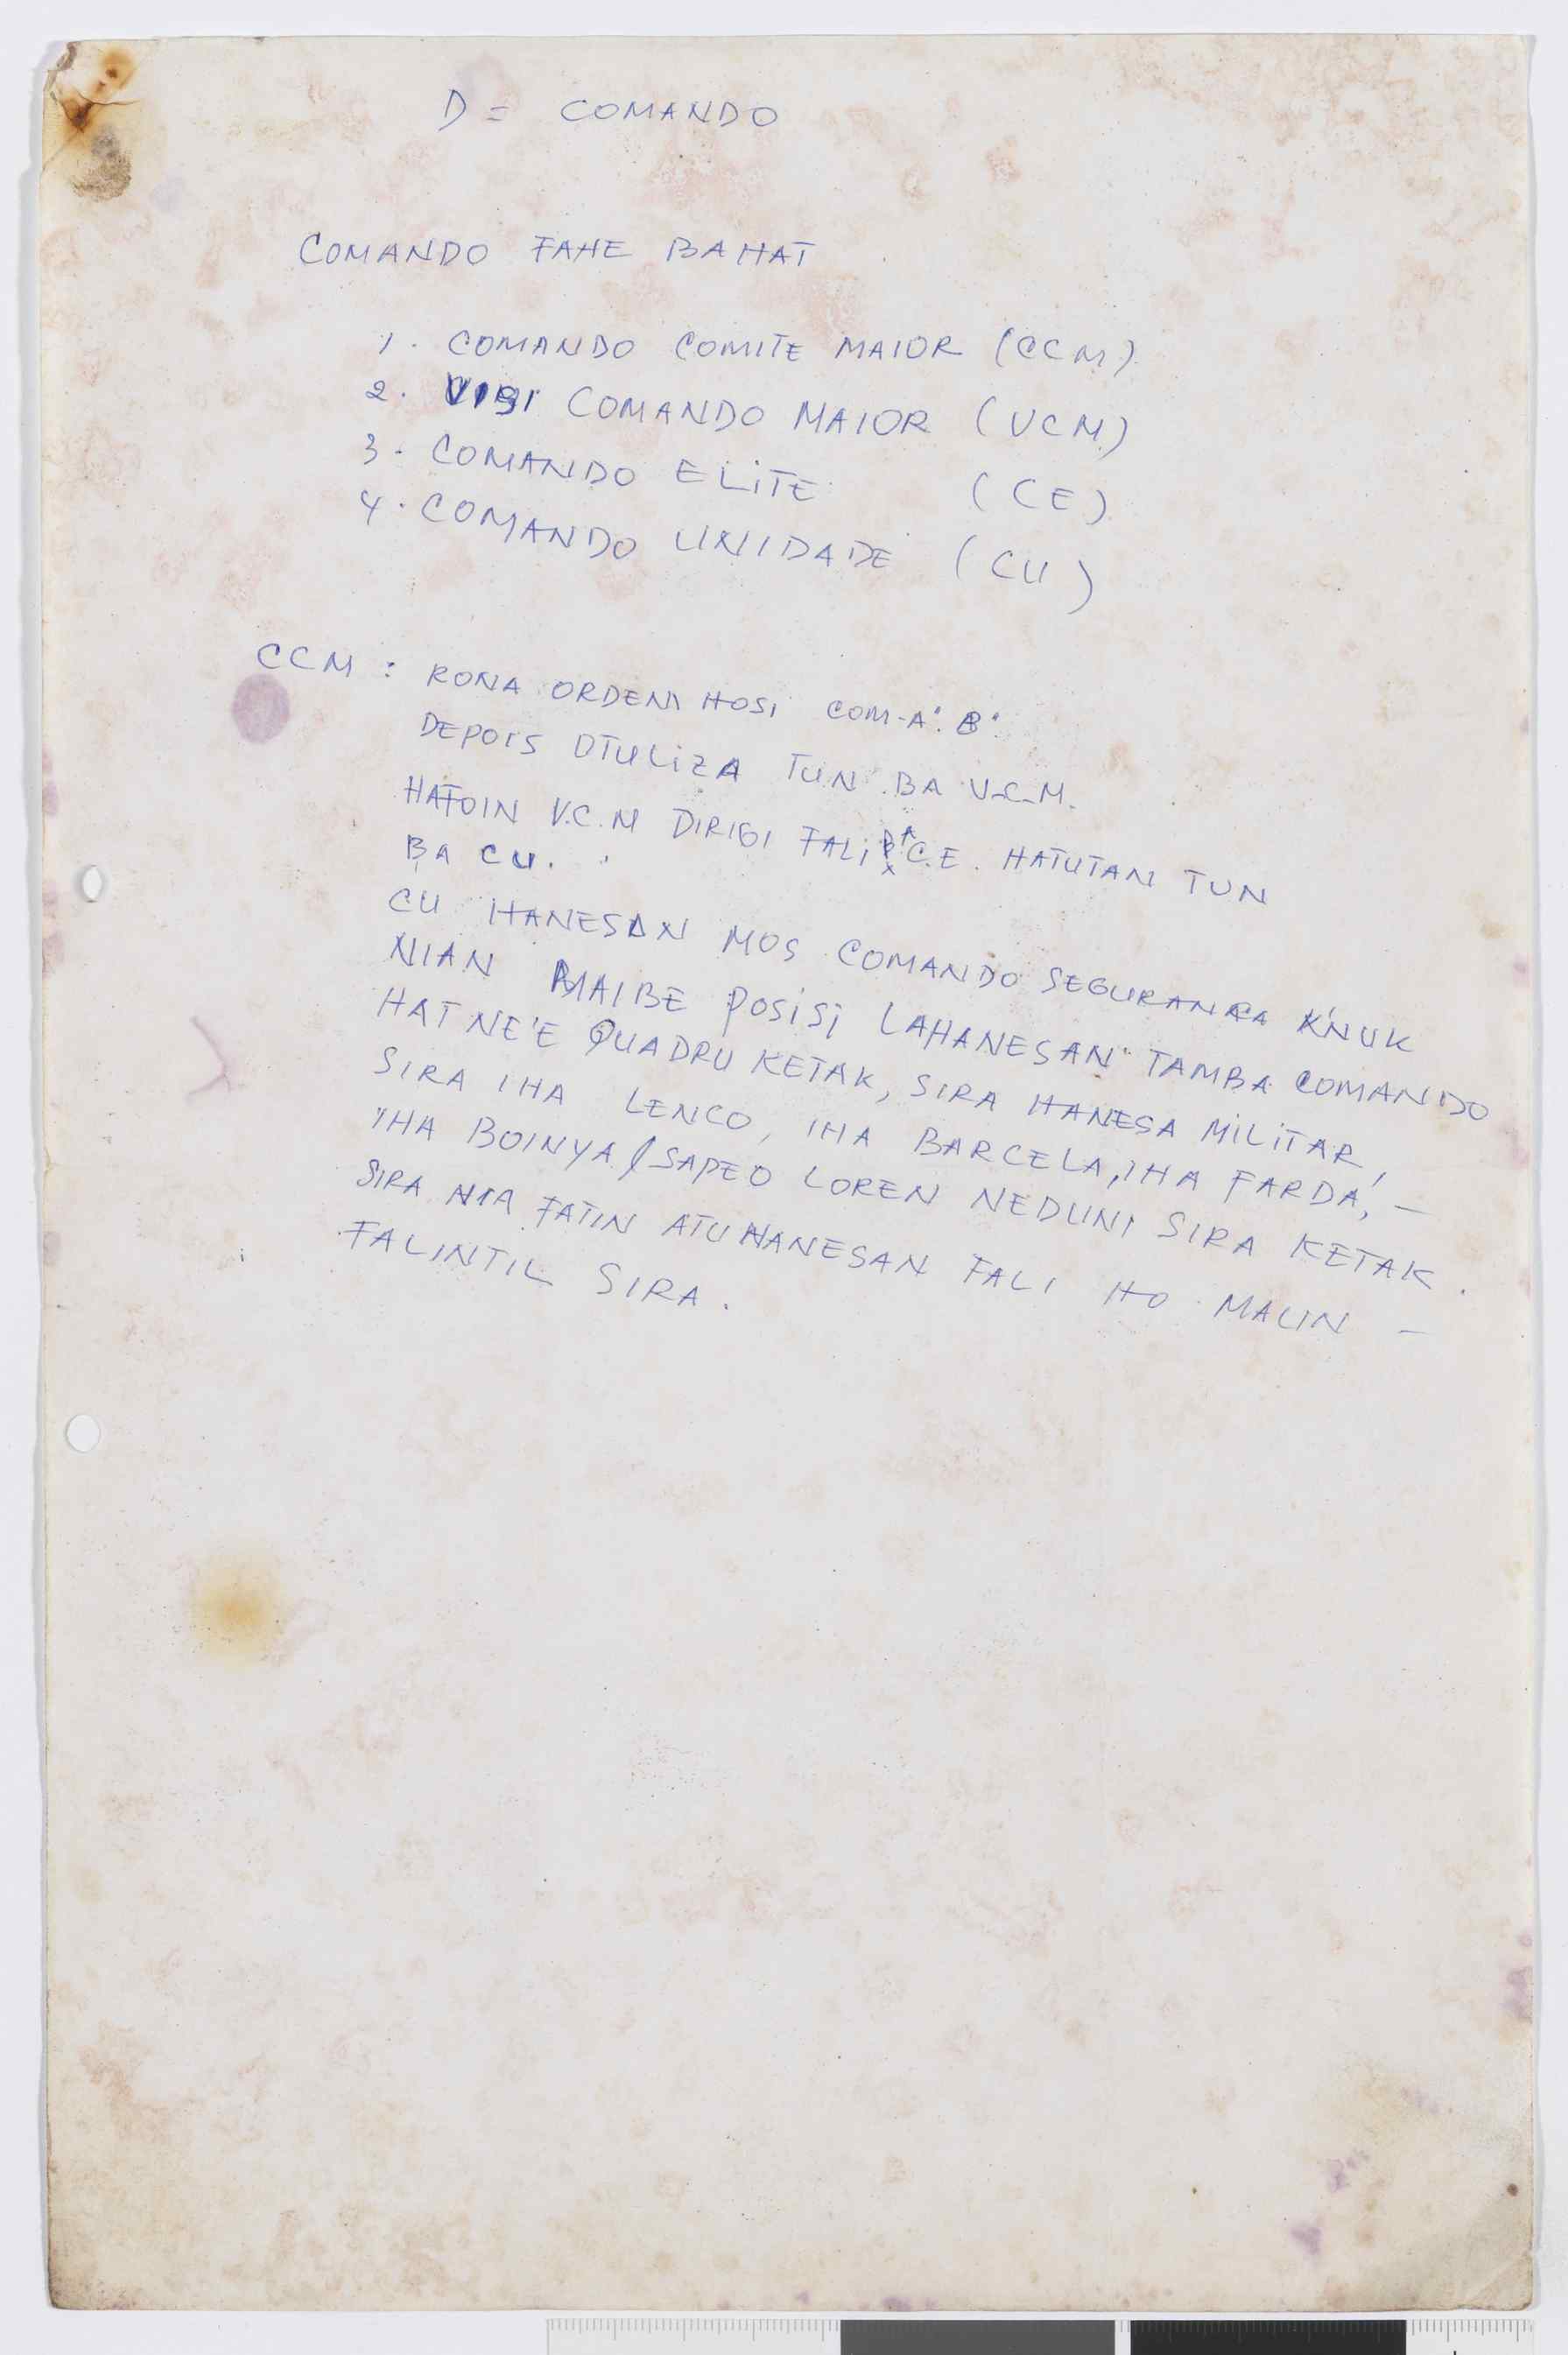 D = COMANDO
COMANDO FAHE BA HAT
1. COMANDO COMITE MAIOR (CCM)
2. VISI COMANDO MAIOR (VCM)
3. COMANDO ELITE (CE)
4. COMANDO UNIDADE (CU)
CCM : RONA ORDEN HOSI COM-A. B.
DEPOIS OTULIZA TUN BA V.C.M.
HATOIN V.C.M DIRIGI FALI BA C.E. HATUTAN TUN
BA CU.
CU HANESAN MOS COMANDO SEGURANCA K'NUK
NIAN MAIBE POSISI LAHANESAN TAMBA COMANDO
HAT NE'E QUADRU KETAK, SIRA HANESA MILITAR,
SIRA IHA LENCO, IHA BARCELA, IHA FARDA, -
IHA BOINYA / SAPEO LOREN NEDUNI SIRA KETAK.
SIRA NIA FATIN ATU HANESAN FALI HO MALIN -
FALINTIL SIRA.